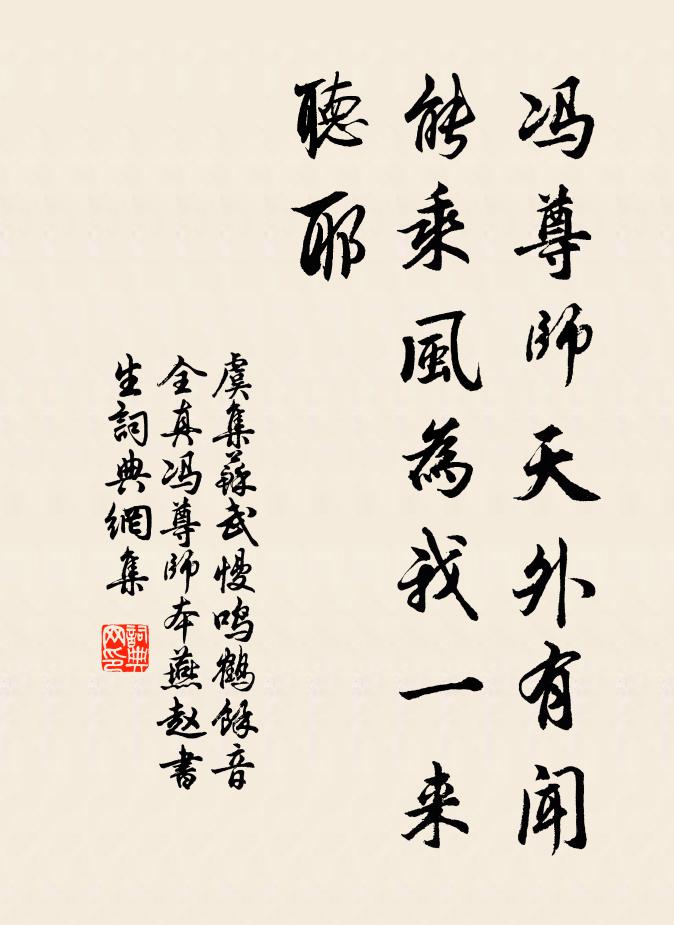 冯尊師天外有聞
能乘風為我一来
聽耶
虞集蘇武慢鸣鶴餘音
全真冯尊師本燕赵書
生詞典網集
詞典
网印